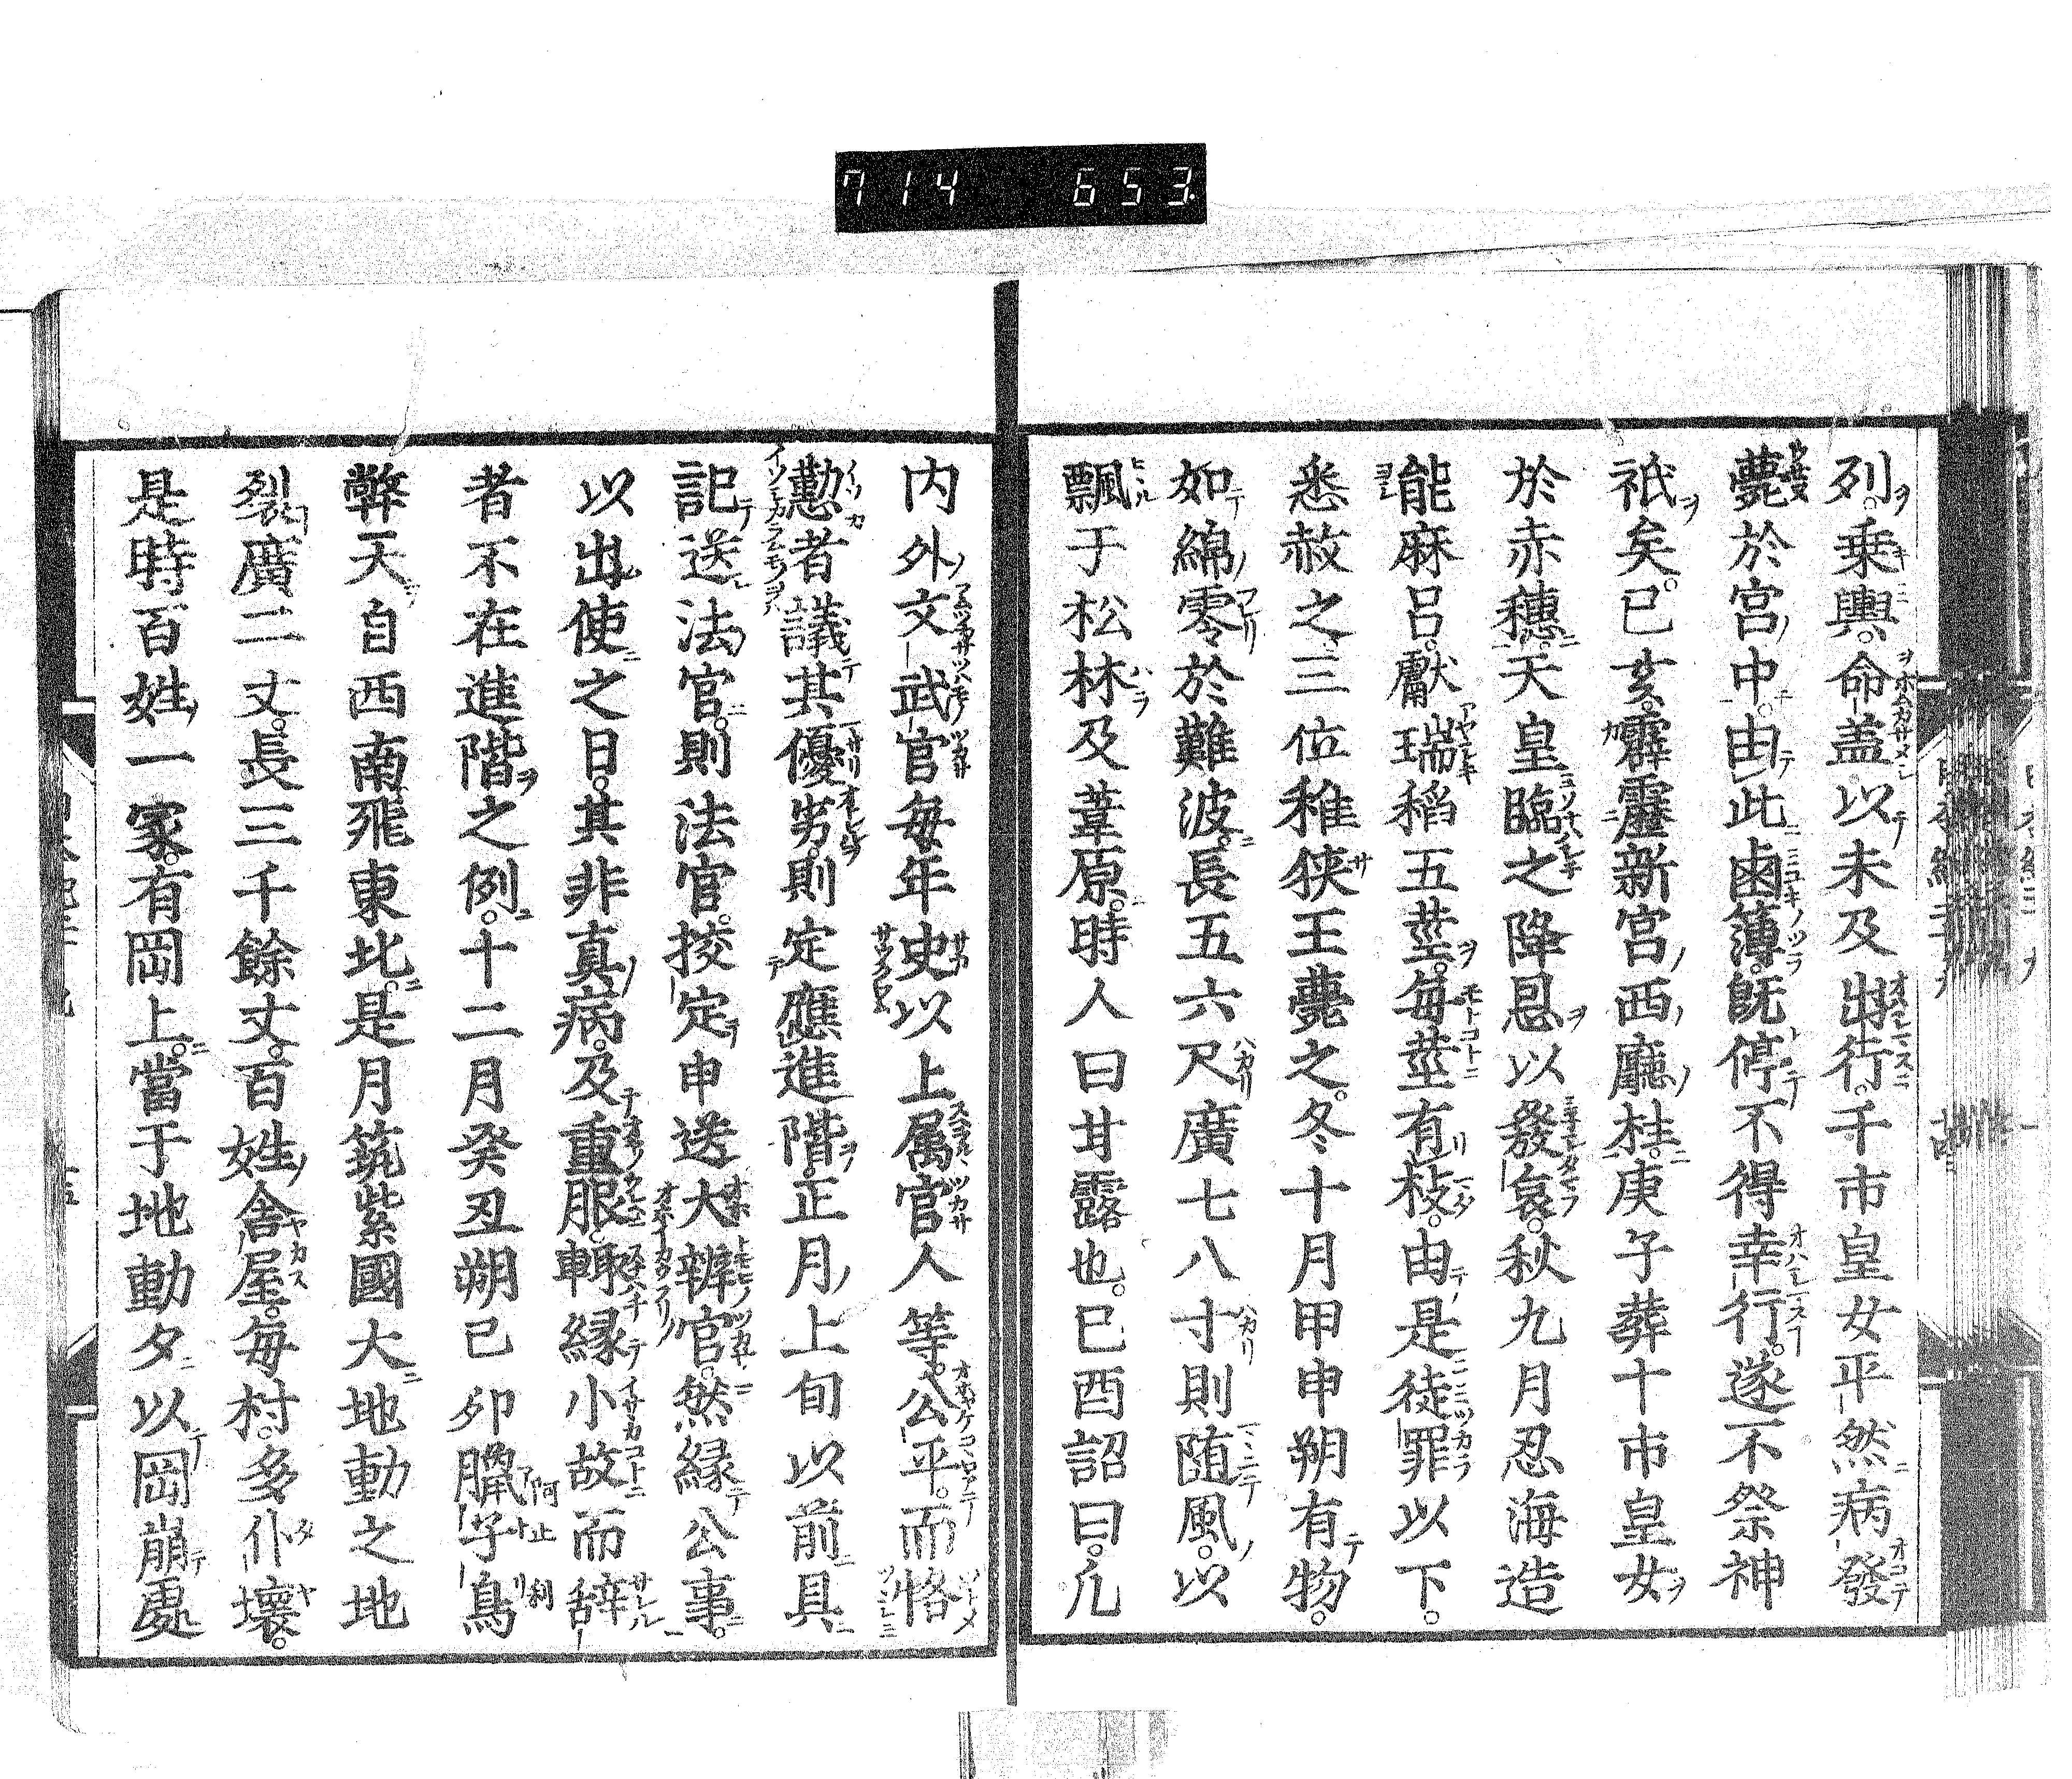 714 653
列乗輿命盖以未及出行千市皇女平然病發
薨於宮中由此鹵簿既停不得幸行遂不祭神
祇矣已亥霹靂新宮西廳柱庚子葬十市皇女
於赤穂天皇臨之降恩以發哀秋九月忍海造
能麻呂獻瑞稻五莖每莖有枝由是徒罪以下
悉赦之三位稚狹王薨之冬十月甲申朔有物
如綿零於難波長五六尺廣七八寸則随風以
飄于松林及葦原時人曰甘露也已酉詔曰凢
内外文武官每年史以上属官人等公平而恪
懃者議其優劣則定應進階正月上旬以前具
記送法官則法官挍定申送大辨官然縁公事
以出使之日其非真病及重服輙縁小故而辞
者不在進階之例十二月癸丑朔己夘臘子鳥
弊天自西南飛東北是月筑紫國大地動之地
裂廣二丈長三千餘丈百姓舎屋每村多仆壞
是時百姓一家有岡上當于地動夕以岡崩處